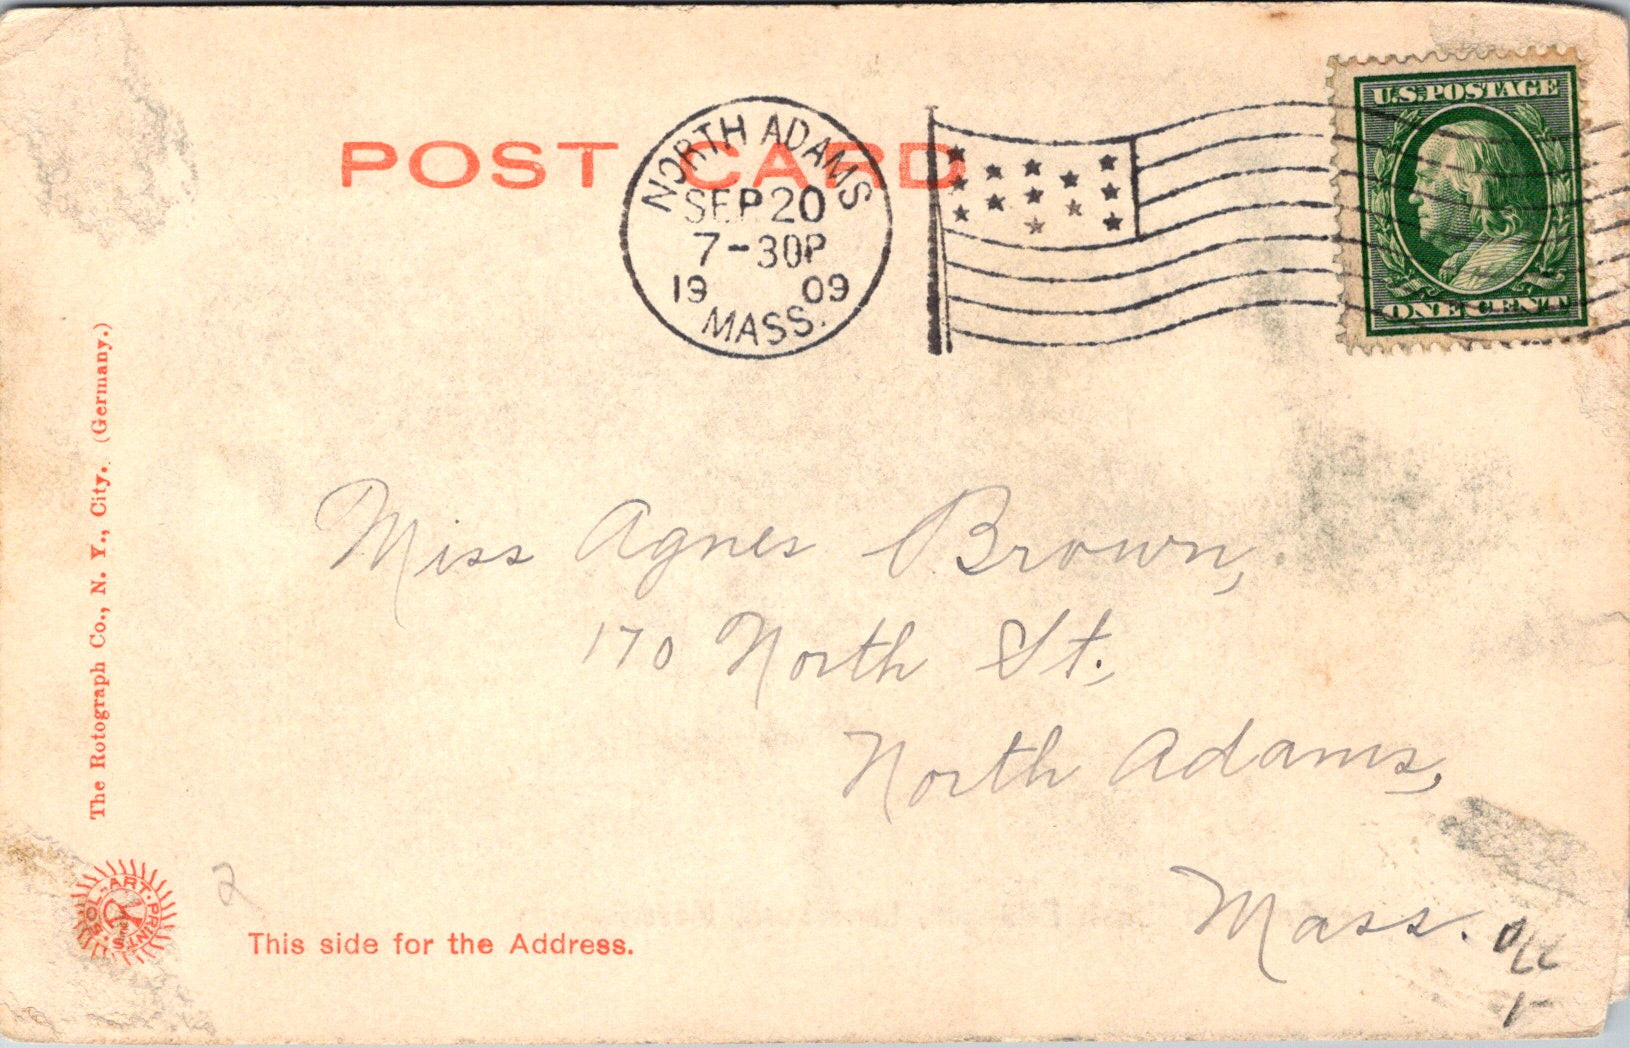 POST CARD
NORTH ADAMS
SEP 20
7-30P
19 09
MASS.
U.S. POSTAGE
ONE CENT
Miss Agnes Brown,
170 North St.,
North Adams,
Mass.
The Rotograph Co., N. Y., City. (Germany.)
SOL-ART-PRINTS
2
This side for the Address.